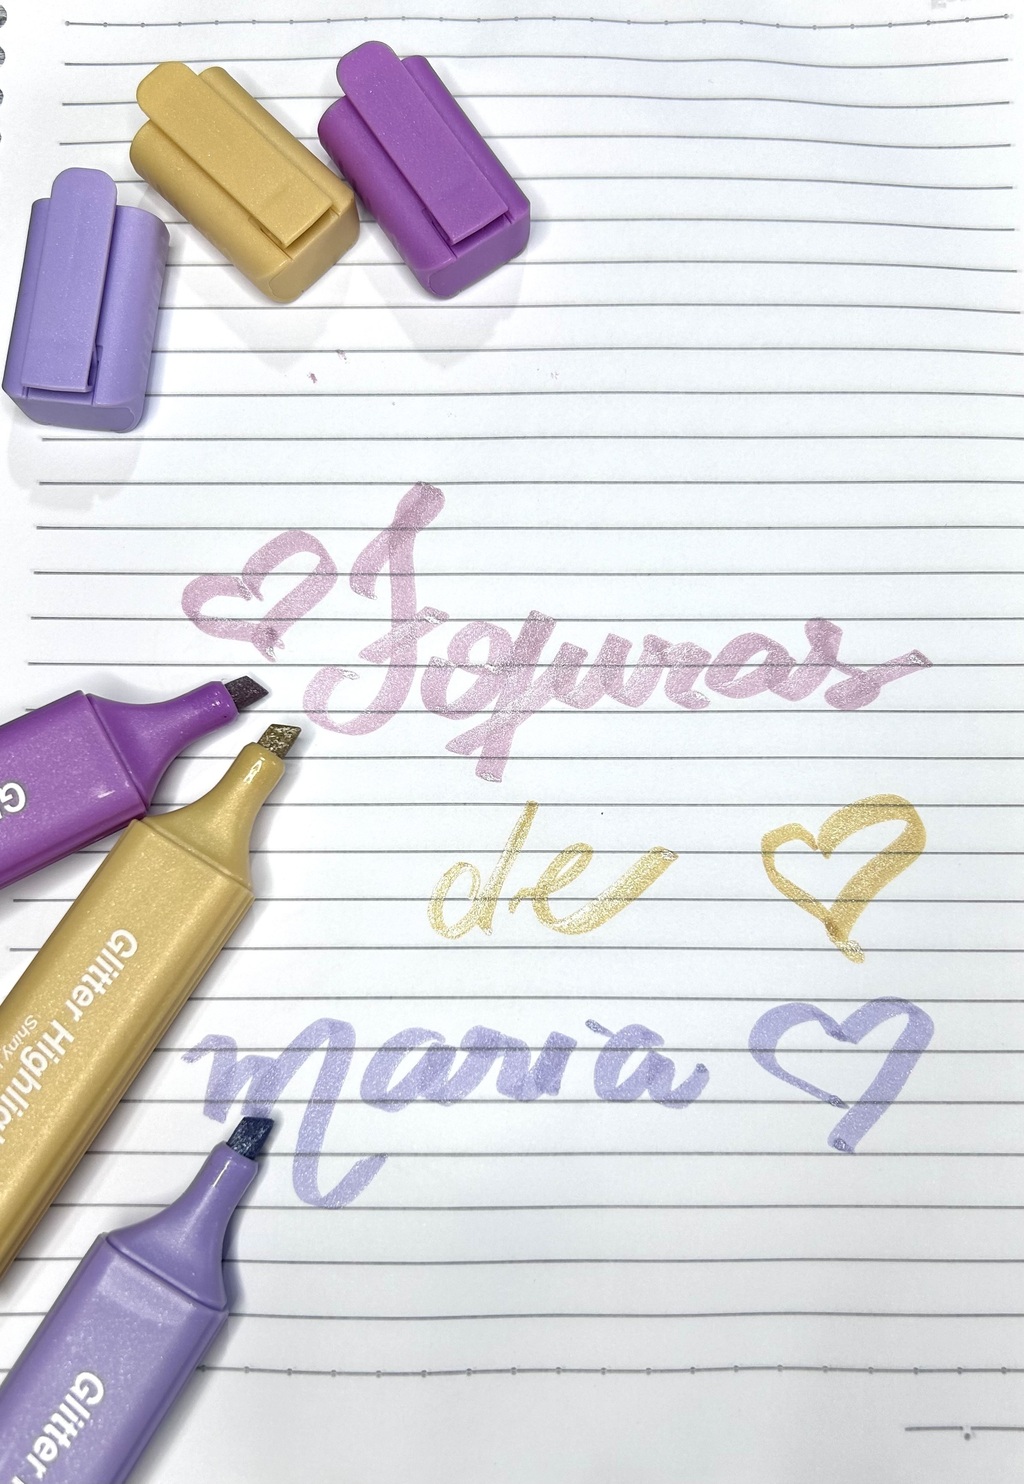 Fofuras
de
maria
Glitter Highlig
Shiny
Glitter